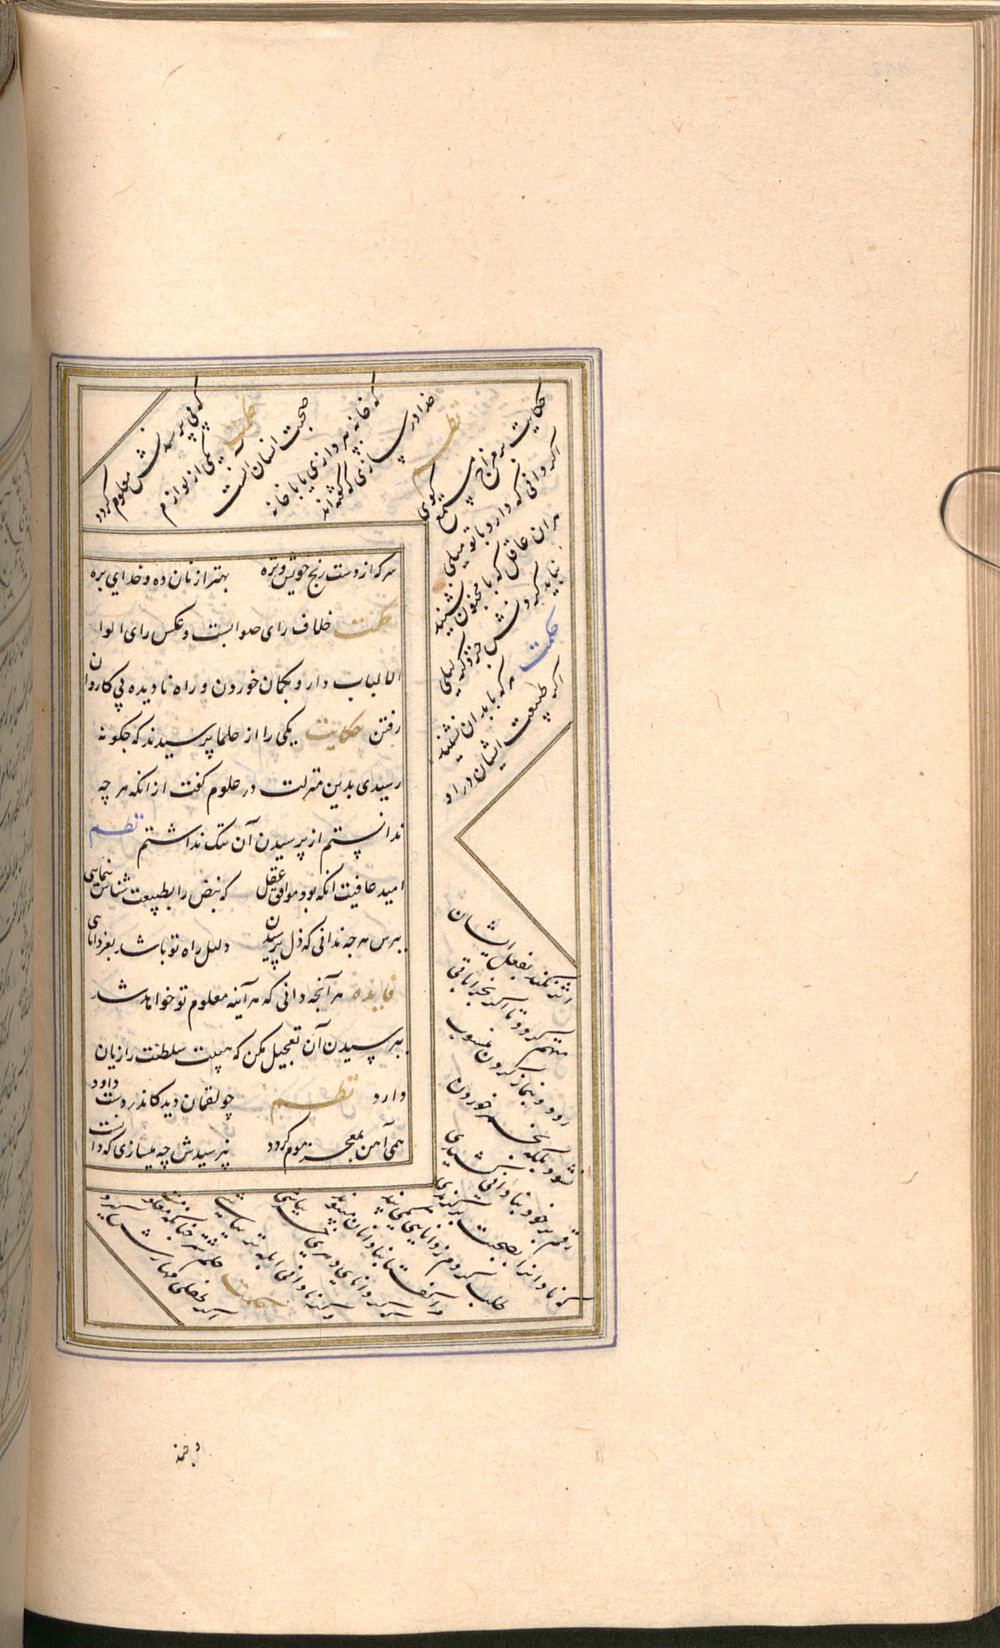 سرکه از دست رنج خویش و تره بهتر از نان ده و خدای بره
حکمت خلاف رای صوابست و عکس رای اولوا
الالباب دارو بگمان خوردن و راه نادیده پی کاروان
رفتن حکایت یکی را از علما پرسیدند که چگونه
رسیدی بدین منزلت در علوم گفت از آنکه هر چه
ندانستم از پرسیدن آن ننگ نداشتم نظم
امید عافیت آنکه بود موافق عقل که نبض را بطبیعت شناس بنمایی
بپرس هر چه ندانی که ذل پرسیدن دلیل راه تو باشد بعز دانایی
فایده هر آنچه دانی که هر آینه معلوم تو خواهد شد
بپرسیدن آن تعجیل مکن که هیبت سلطنت را زیان
دارد نظم چو لقمان دید کاندر دست داود
همی آهن بمعجز موم گردد نپرسیدش چه میسازی که دانست
که بی پرسیدنش معلوم گردد
حکمت یکی از لوازم
صحبت آنست
که خانه بپردازی یا با خانه
خدا در سازی
نظم
حکایت بر مزاج مستمع گوی
اگر دانی که دارد با تو میلی
هر آن عاقل که با مجنون نشیند
نباید کردنش جز ذکر لیلی
حکمت هر که با بدان نشیند
اگر طبیعت ایشان در او
اثر نکند بفعل ایشان
متهم گردد تا اگر بخراباتی
رود و بنماز کردن منسوب
نشود مگر بخمر خوردن
رقم بر خود بنادانی کشیدی
که نادان را بصحبت برگزیدی
طلب کردم ز دانایی یکی پند
مرا گفتا بنادانان مپیوند
که گر دانای دهری خر بباشی
وگر نادانی ابله‌تر بباشی
حکمت حلم شتر چنانکه معلومست
اگر طفلی مهارش گیرد